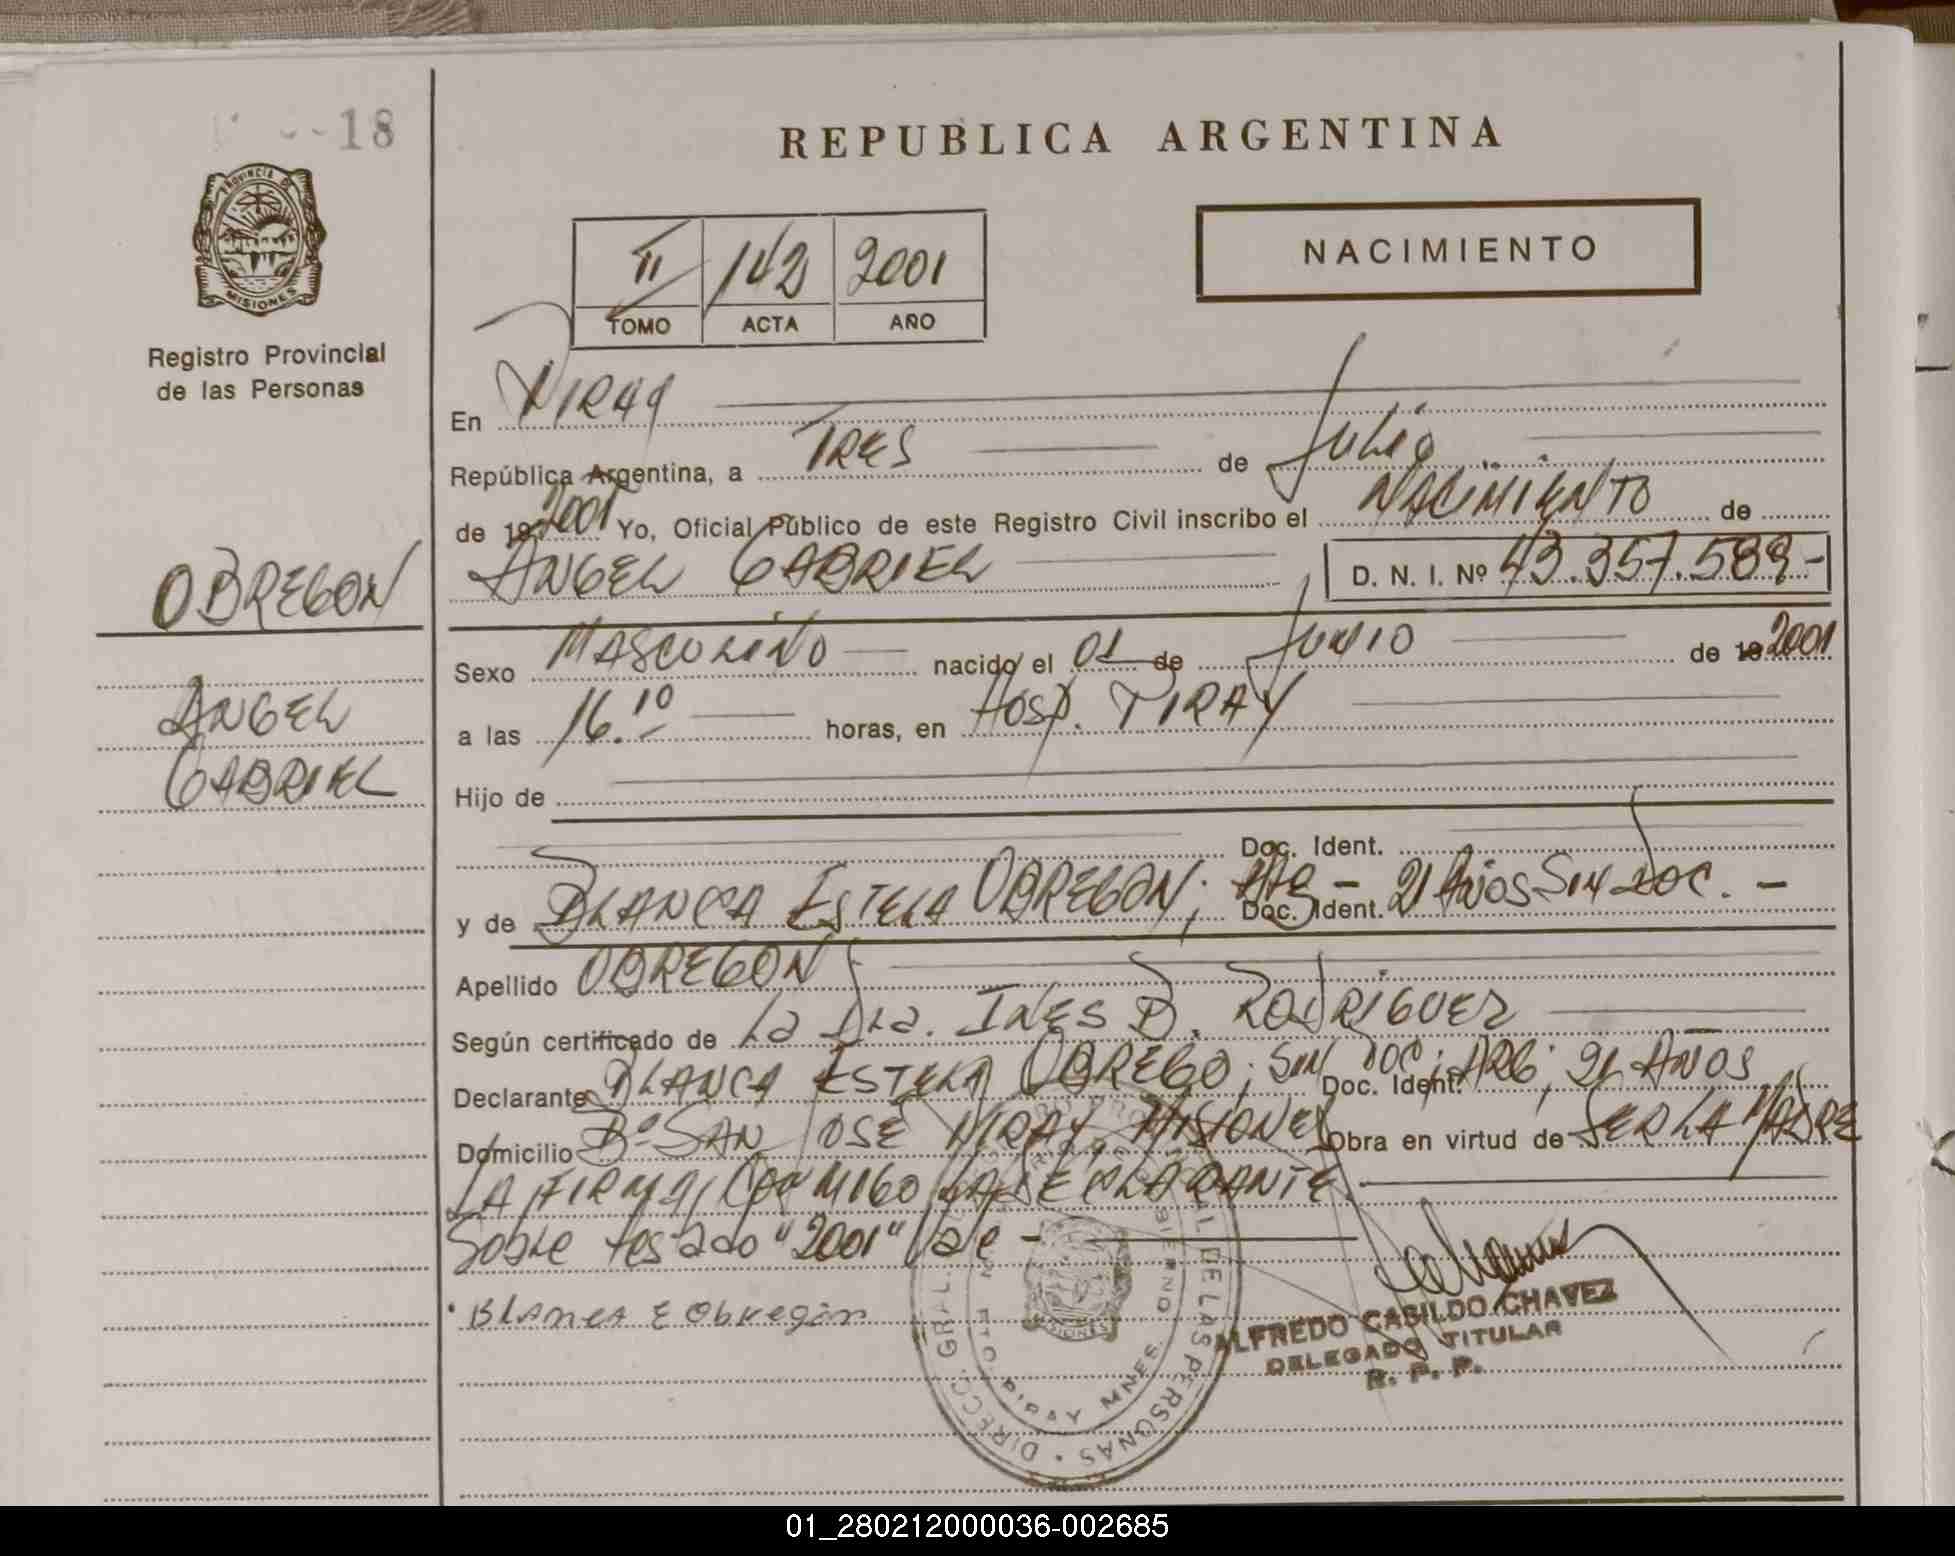 18
PROVINCIA DE
MISIONES
Registro Provincial
de las Personas
OBREGON
ANGEL
GABRIEL
REPUBLICA ARGENTINA
NACIMIENTO
II 142 2001
TOMO ACTA AÑO
En PIRAY
República Argentina, a TRES de Julio
de 19 2001 Yo, Oficial Público de este Registro Civil inscribo el NACIMIENTO de
ANGEL GABRIEL D. N. I. Nº 43.357.589.-
Sexo MASCULINO nacido el 01 de JUNIO de 19 2001
a las 16.10 horas, en Hosp. PIRAY
Hijo de
Doc. Ident.
y de BLANCA ESTELA OBREGON; ARG - Doc. Ident. 21 Años Sin Doc. -
Apellido OBREGON
Según certificado de La Dra. INES B. RODRIGUEZ
Declarante BLANCA ESTELA OBREGO; SIN DOC; Doc. Ident. ARG; 21 AÑOS
Domicilio Bº SAN JOSE PIRAY MISIONES Obra en virtud de SER LA MADRE
LA FIRMA CONMIGO LA DECLARANTE.
Sobre testado "2001" Vale -
Blanca E Obregón
DIRECC. GRAL. DE LAS PERSONAS
PTO. PIRAY MNES.
MISIONES
ALFREDO CABILDO CHAVEZ
DELEGADO TITULAR
R. P. P.
01_280212000036-002685